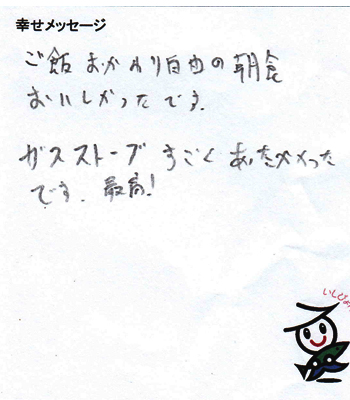 幸せメッセージ
ご飯おかわり自由の朝食
おいしかったです.
ガスストーブ すごくあたたかかった
です. 最高!